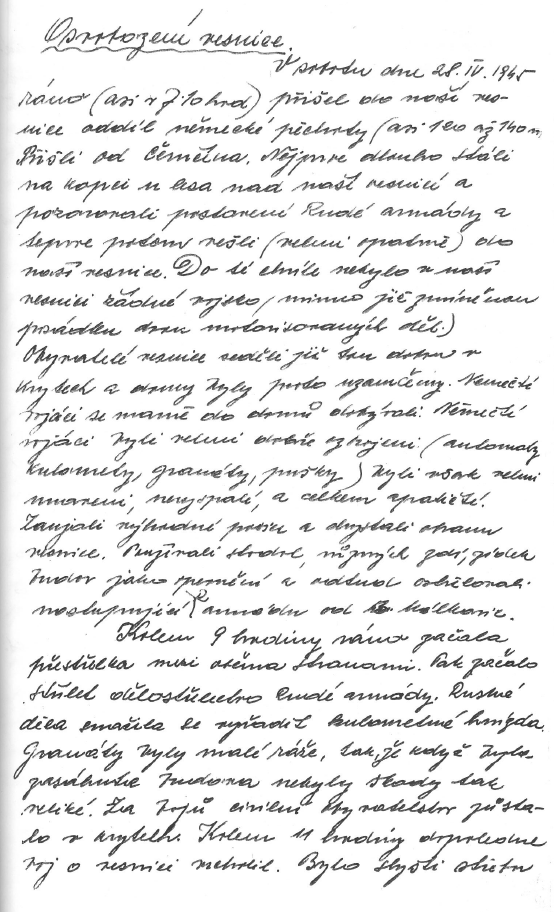 Osvobození vesnice.
V sobotu dne 28. IV. 1945
ráno (asi v 7.10 hod) přišel do naší ves-
nice oddíl německé pěchoty (asi 120 až 140 m
Přišli od Nejprve dlouho stáli
na kopci u lesa nad naší vesnicí a
pozorovali postavení Rudé armády a
teprve potom vešli (velmi opatrně) do
naší vesnice. Do té chvíle nebylo v naší
vesnici žádné vojsko (mimo již zmíněnou
posádku dvou motorisovaných děl.)
Obyvatelé vesnice seděli již tou dobou v
krytech a domy byly proto uzamčeny. Němečtí
vojáci se marně do domů dobývali. Němečtí
vojáci byli velmi dobře ozbrojeni (automaty
kulomety, granáty, pušky) byli však velmi
unaveni, nevyspalí, a celkem apatičtí.
Zaujali výhodné posice a obsadili stranu
vesnice. Využívali stodol, různých zdí, zídek
budov jako opevnění a odtud ostřelovali
nastupující R armádu od
Kolem 9 hodiny ráno začala
přestřelka mezi oběma stranami. Pak začalo
střílet dělostřelectvo Rudé armády. Ruská
děla snažila se vyřadit kulometná hnízda.
Granáty byly malé ráže, tak, že když byla
zasáhnuta budova nebyly škody tak
veliké. Za bojů civilní obyvatelstvo zůsta-
lo v krytech. Kolem 11 hodiny dopoledne
boj o vesnici vrcholil. Bylo slyšet střelbu